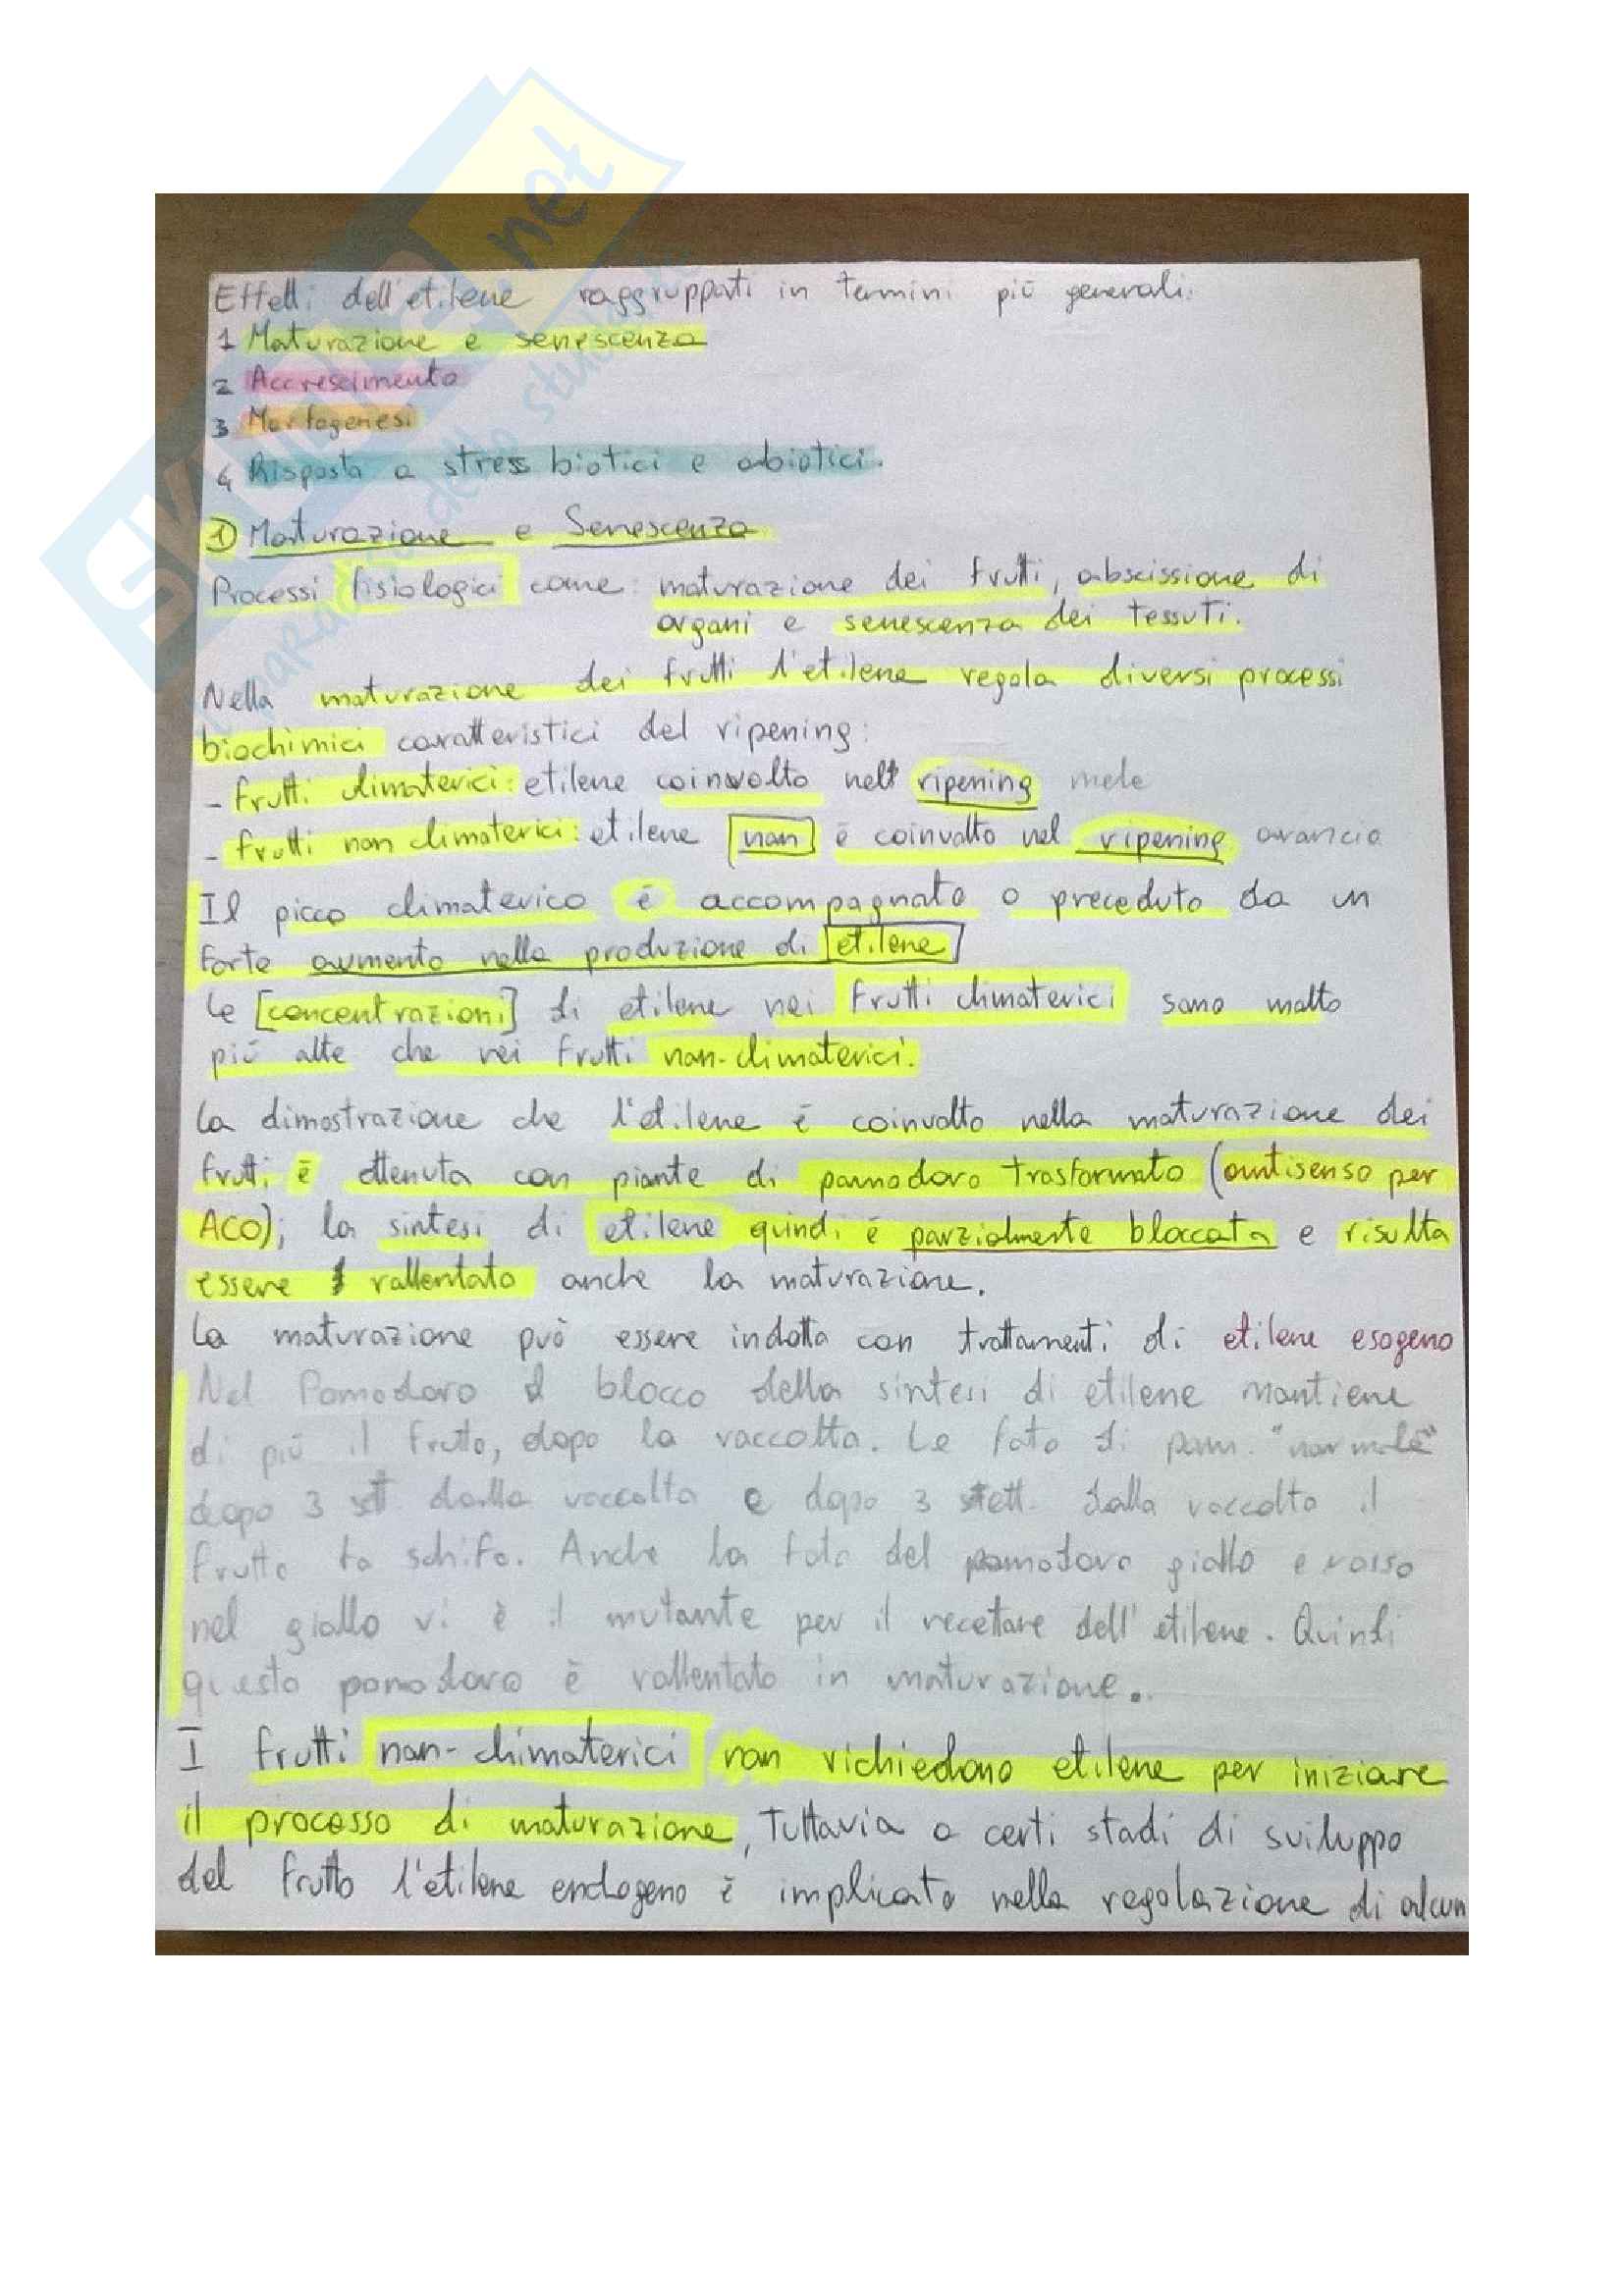 Skuola.net
il paradiso dello studente
Effetti dell'etilene raggruppati in termini più generali:
1 Maturazione e senescenza
2 Accrescimento
3 Morfogenesi
4 Risposta a stress biotici e abiotici.
1) Maturazione e Senescenza
Processi fisiologici come: maturazione dei frutti, abscissione di
organi e senescenza dei tessuti.
Nella maturazione dei frutti l'etilene regola diversi processi
biochimici caratteristici del ripening:
- frutti climaterici: etilene coinvolto nell ripening mele
- frutti non climaterici: etilene non è coinvolto nel ripening arancia
Il picco climaterico è accompagnato o preceduto da un
forte aumento nella produzione di etilene
Le [concentrazioni] di etilene nei frutti climaterici sono molto
più alte che nei frutti non-climaterici.
La dimostrazione che l'etilene è coinvolto nella maturazione dei
frutti è ottenuta con piante di pomodoro trasformato (antisenso per
ACO); la sintesi di etilene quindi è parzialmente bloccata e risulta
essere rallentato anche la maturazione.
La maturazione può essere indotta con trattamenti di etilene esogeno
Nel Pomodoro il blocco della sintesi di etilene mantiene
di più il frutto, dopo la raccolta. Le foto di pom. "normale"
dopo 3 sett. dalla raccolta e dopo 3 sett. dalla raccolta il
frutto fa schifo. Anche la foto del pomodoro giallo e rosso
nel giallo vi è il mutante per il recettore dell'etilene. Quindi
questo pomodoro è rallentato in maturazione..
I frutti non-climaterici non richiedono etilene per iniziare
il processo di maturazione, Tuttavia a certi stadi di sviluppo
del frutto l'etilene endogeno è implicato nella regolazione di alcun